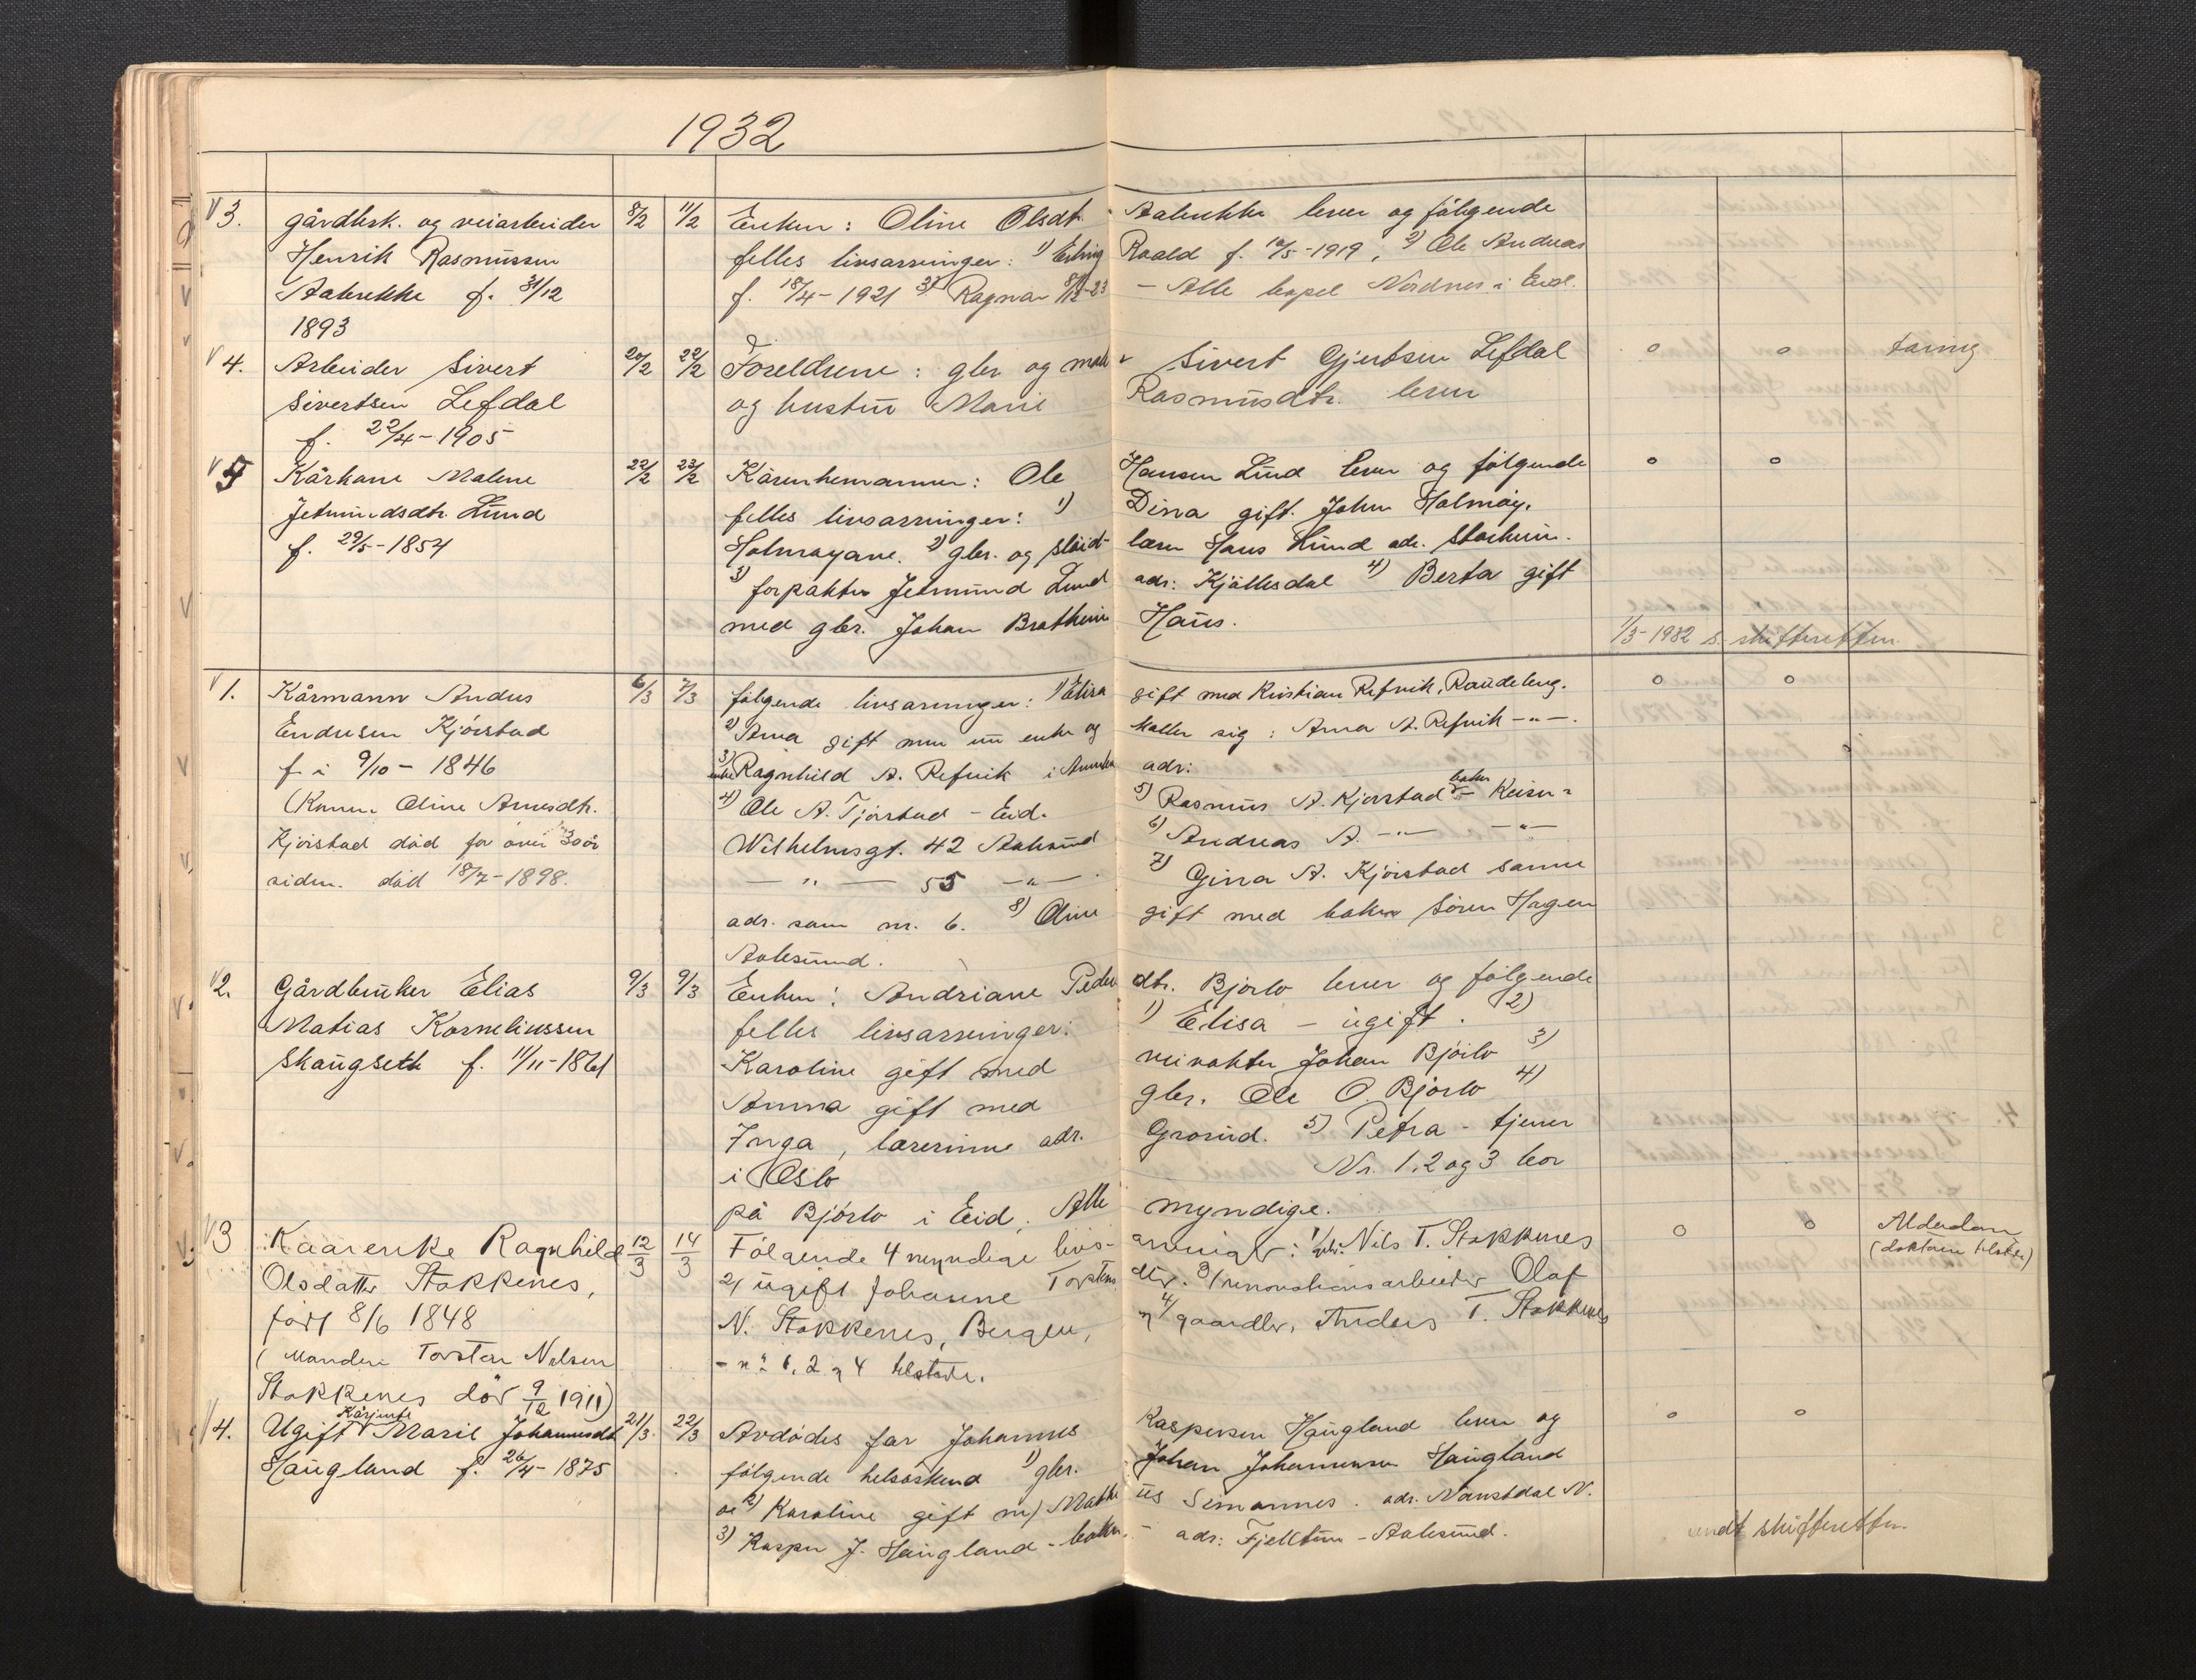 1932
3. gårdbrk. og veiarbeider 8/2 11/2 Enken: Oline Olsdt. Aabrekke lever og følgende
Henrik Rasmussen felles livsarvinger: 1) Erling Roald f. 12/5-1919, 2) Ole Andreas
Aabrekke f. 31/12 f. 18/4-1921 3) Ragnar - Alle bopel Nordnes i Eid.
1893
4. Arbeider Sivert 20/2 22/2 Foreldrene: gbr og Sivert Gjertsen Lefdal o o tæring
Sivertsen Lefdal og hustru Marie Rasmusdtr. lever
f. 22/4-1905
5 Kårkone Malene 22/2 23/2 Kårenkemannen: Ole Hansen Lund lever og følgende o o
Jetmundsdtr. Lund felles livsarvinger: 1) Dina gift. John Holmøy,
f. 29/5-1854 Holmøyane. 2) gbr. og sløid- lærer Hans Lund adr. Starheim.
3) forpakter Jetmund Lund adr: Kjøllesdal 4) Berta gift
med gbr. Johan Bratheim Haus.
1/3-1932 s. skifteretten.
1. Kårmann Andus 6/3 7/3 følgende livsarvinger: 1) Elisa gift med Kristian Refvik, Raudeberg. o o
Endresen Kjörstad 2) Anna gift men nu enke og kaller sig: Anna A. Refvik -"-.
f i 9/10-1846 3) enke Ragnhild A. Refvik i Amerika adr:
(Konen Oline Arnesdtr. 4) Ole A. Tjörstad - Eid. 5) Rasmus A. Kjørstad baker - Keiser=
Kjörstad död for over 30 år Wilhelmsgt. 42 Aalesund 6) Andreas A. -"- -"-
siden. död 18/7-1898. -"- 55 -"-. 7) Gina A. Kjörstad samme
adr. som nr. 6. 8) Oline gift med baker Sören Hagen
Aalesund.
2. Gårdbruker Elias 9/3 9/3 Enken: Andriane Peders dtr. Bjørlo lever og følgende
Matias Korneliussen felles livsarvinger: 1) Elisa - ugift. 2)
Skaugseth f. 11/11-1861 Karoline gift med veivokter Johan Bjørlo 3)
Anna gift med gbr. Ole O. Bjørlo 4)
Inga, lærerinne adr. Grorud. 5) Petra - tjener
i Oslo Nr. 1, 2 og 3 bor
på Bjørlo i Eid. Alle myndige.
3 Kaarenke Ragnhild 12/3 14/3 Følgende 4 myndige livs- arvinger: 1/ gbr. Nils T. Stokkenes o o Alderdom
Olsdatter Stokkenes, 2/ ugift Johanne Torstens dtr. 3/ renovationsarbeider Olaf (doktoren tilstede)
født 8/6 1848 N. Stokkenes, Bergen, og 4/ gaardbr. Anders T. Stokkenes
(Manden Torsten Nilsen - nr 1, 2 og 4 tilstede.
Stokkenes død 9/12 1911)
4. Ugift Kårjente Marie Johannesdt 21/3 22/3 Avdødes far Johannes Kaspersen Haugland lever og o o
Haugland f. 26/4-1875 følgende helsøskend 1) gbr. Johan Johannessen Haugland
og 2) Karoline gift m/ Matti us Simonnes. adr. Naustdal N.
3) Kasper J. Haugland - baker. - adr: Fjelltun - Aalesund.
sendt skifteretten.